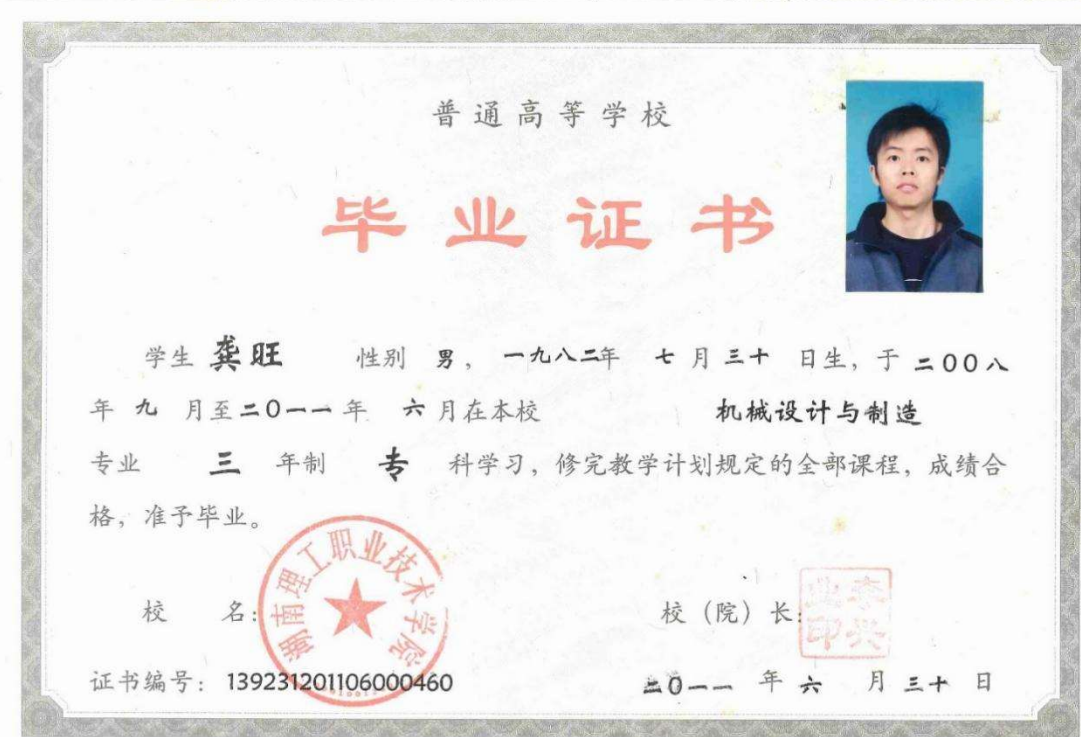 普通高等学校
毕业证书
学生 龚旺 性别 男，一九八二年 七月三十日生，于二00八
年九月至二0一一年 六月在本校 机械设计与制造
专业 三 年制 专 科学习，修完教学计划规定的全部课程，成绩合
格，准予毕业。
湖南理工职业技术学院
校 名：
校（院）长：
证书编号：139231201106000460
二0一一 年 六 月 三十 日